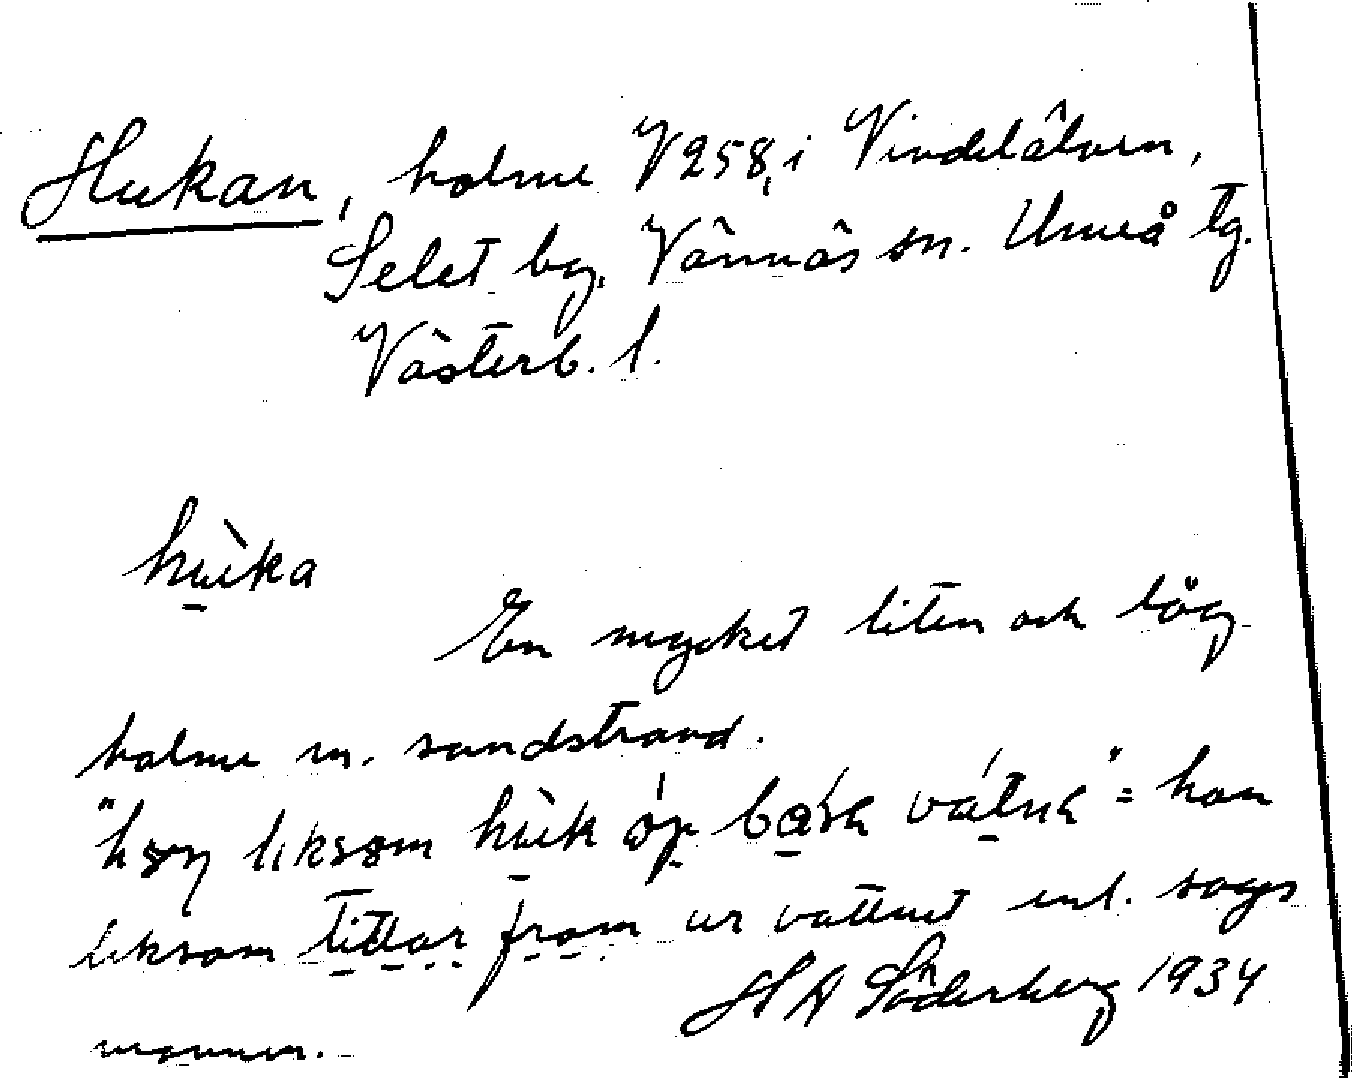 Hukan, holme V258, i Vindelälven,
Selet by, Vännäs sn. Umeå tg.
Västerb. l.
hùka
En mycket liten och låg
holme m. sandstrand.
liksom hùk óp " = han
liksom tittar fram ur vattnet enl. sages
mannen.
H A Söderberg 1934